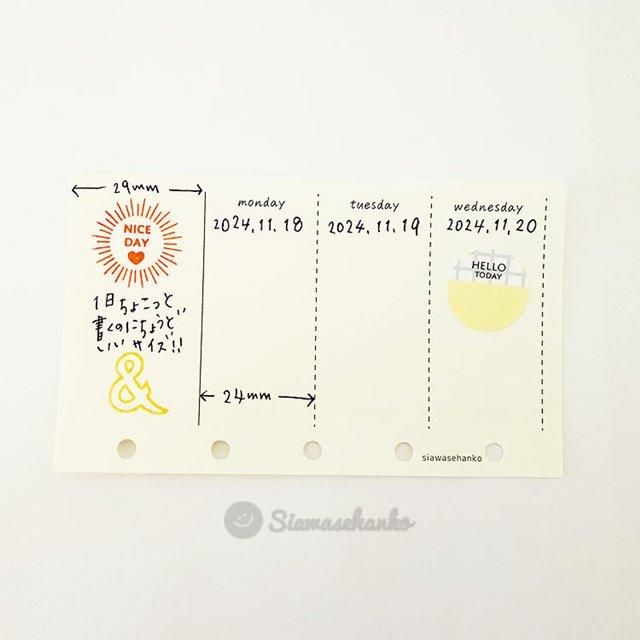 29mm
NICE
DAY
1日ちょこっと
書くのにちょうど
いいサイズ!!
&
monday
2024.11.18
24mm
tuesday
2024.11.19
wednesday
2024.11.20
HELLO
TODAY
siawasehanko
Siawasehanko